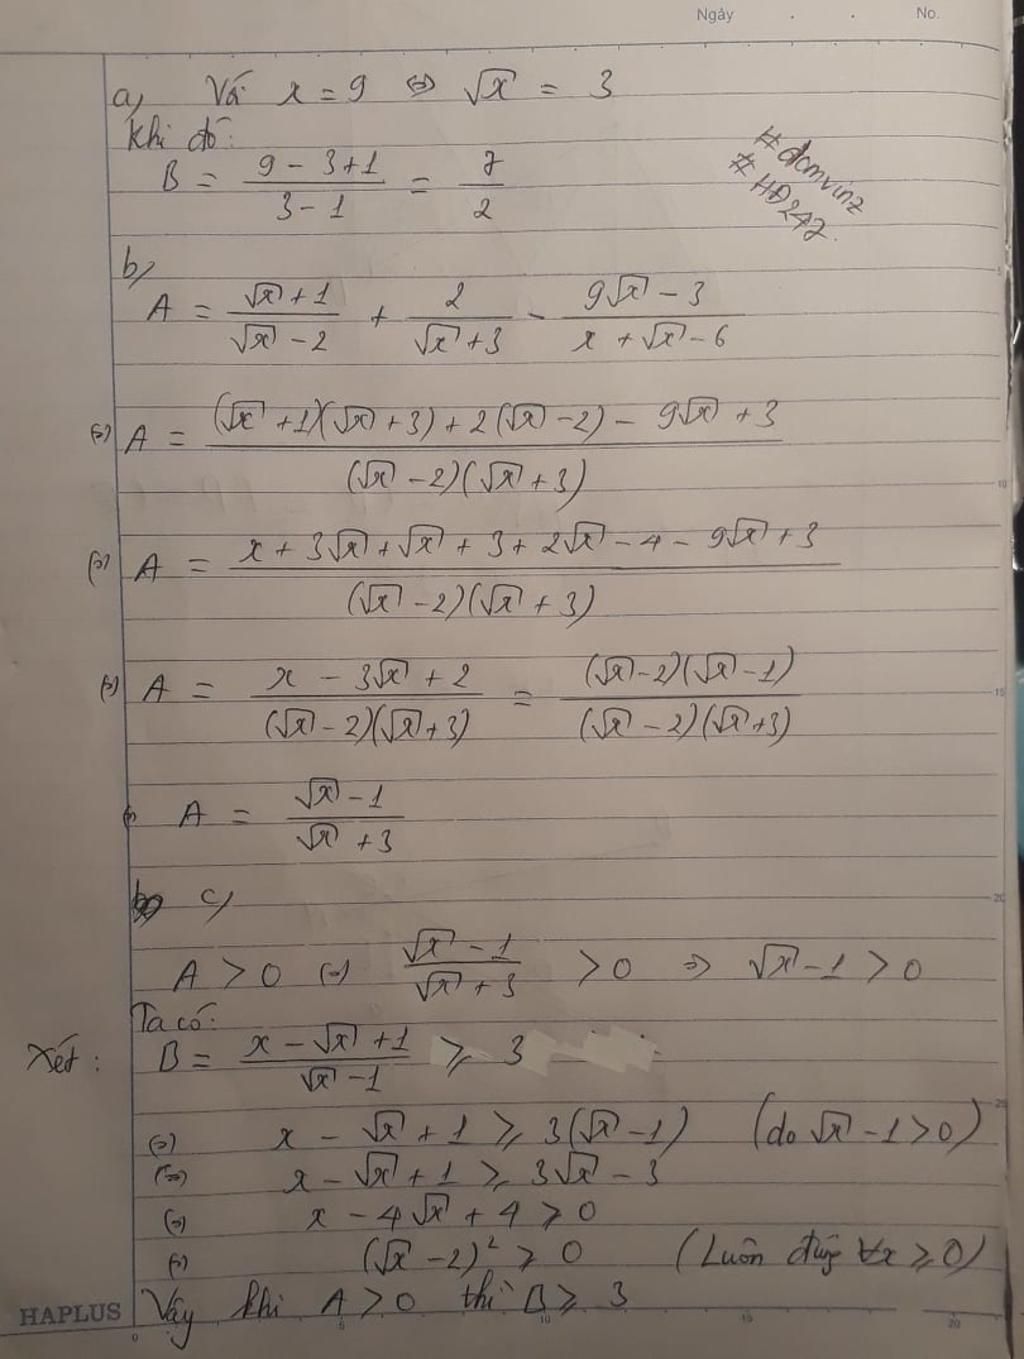 Ngày . . No.
a, Với x = 9 ⇔ √x = 3
Khi đó:
B = (9 - 3 + 1)/(3 - 1) = 7/2
#domvinz
#HĐ247
b,
A = (√x + 1)/(√x - 2) + 2/(√x + 3) - (9√x - 3)/(x + √x - 6)
(⇔) A = ((√x + 1)(√x + 3) + 2(√x - 2) - 9√x + 3)/((√x - 2)(√x + 3))
(⇔) A = (x + 3√x + √x + 3 + 2√x - 4 - 9√x + 3)/((√x - 2)(√x + 3))
(⇔) A = (x - 3√x + 2)/((√x - 2)(√x + 3)) = ((√x - 2)(√x - 1))/((√x - 2)(√x + 3))
A = (√x - 1)/(√x + 3)
c,
A > 0 (⇔) (√x - 1)/(√x + 3) > 0 ⇒ √x - 1 > 0
Ta có:
Xét: B = (x - √x + 1)/(√x - 1) ⩾ 3
(⇔) x - √x + 1 ⩾ 3(√x - 1) (do √x - 1 > 0)
(⇔) x - √x + 1 ⩾ 3√x - 3
(⇔) x - 4√x + 4 ⩾ 0
(⇔) (√x - 2)² ⩾ 0 (Luôn đúng ∀x ⩾ 0)
Vậy khi A > 0 thì B ⩾ 3
HAPLUS
0 5 10 15 20
5
10
15
20
25